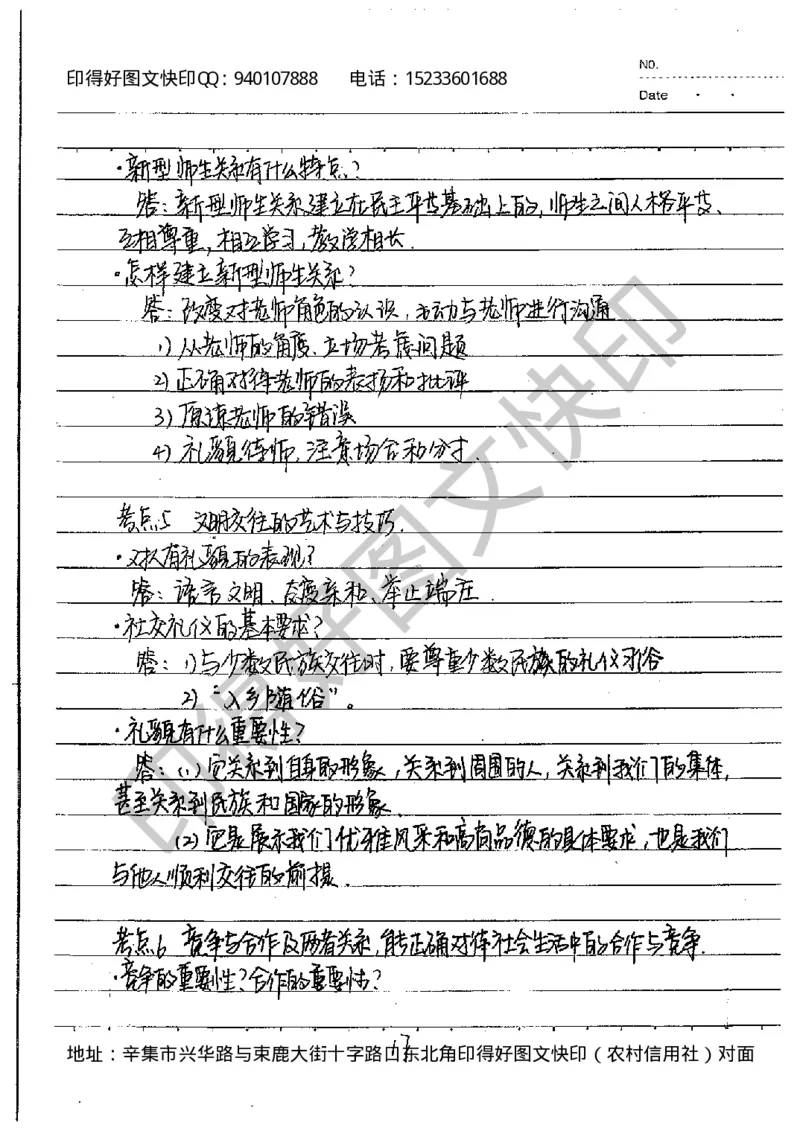 印得好图文快印QQ：940107888 电话：15233601688
NO.
Date
·新型师生关系有什么特点？
答：新型师生关系建立在民主平等基础上的，师生之间人格平等、
互相尊重，相互学习，教学相长.
·怎样建立新型师生关系？
答：改变对老师角色的认识，主动与老师进行沟通
1）从老师的角度、立场考虑问题
2）正确对待老师的表扬和批评
3）原谅老师的错误
4）礼貌待师，注意场合和分寸.
考点5 文明交往的艺术与技巧.
·对人有礼貌的表现？
答：语言文明、态度亲和、举止端庄.
·社交礼仪的基本要求？
答：1）与少数民族交往时，要尊重少数民族的礼仪习俗
2）“入乡随俗”。
·礼貌有什么重要性？
答：(1) 它关系到自身的形象，关系到周围的人，关系到我们的集体，
甚至关系到民族和国家的形象.
(2) 它是展示我们优雅风采和高尚品德的具体要求，也是我们
与他人顺利交往的前提.
考点6 竞争与合作及两者关系，能正确对待社会生活中的合作与竞争.
·竞争的重要性？合作的重要性？
17
地址：辛集市兴华路与束鹿大街十字路口东北角印得好图文快印（农村信用社）对面
印得好图文快印